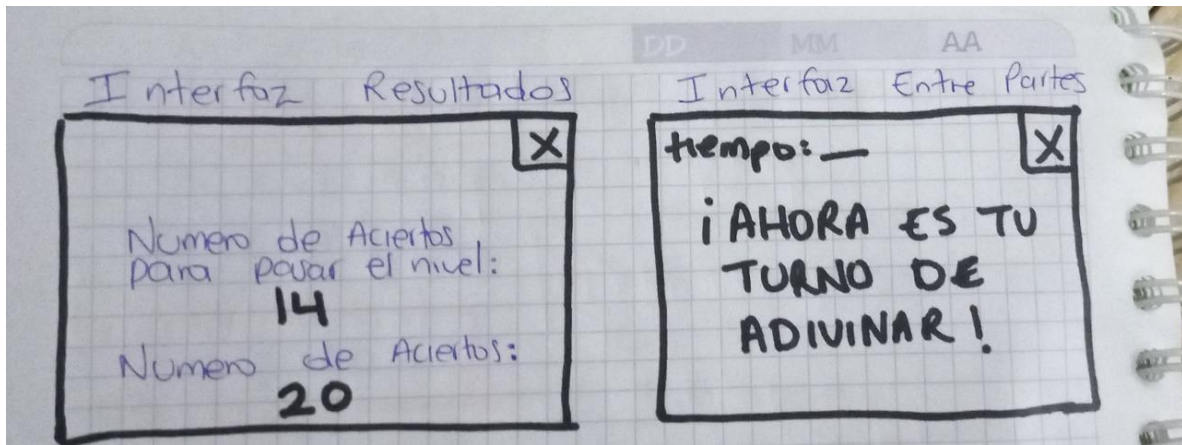 DD MM AA
Interfaz Resultados
X
Numero de Aciertos
para pasar el nivel:
14
Numero de Aciertos:
20
Interfaz Entre Partes
tiempo: —
X
¡AHORA ES TU
TURNO DE
ADIVINAR!